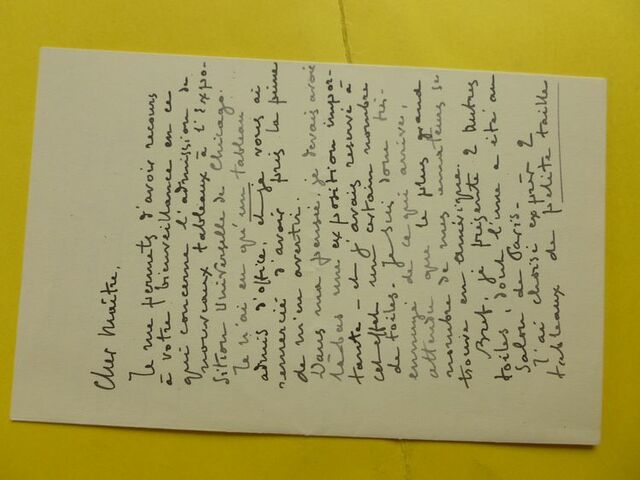 Cher Maître,
Je me permets d'avoir recours
à votre bienveillance en ce
qui concerne l'admission de
nouveaux tableaux à l'Expo-
sition Universelle de Chicago.
Je n'ai eu qu'un tableau
admis d'office, et je vous ai
remercié d'avoir pris la peine
de m'en avertir.
Dans ma pensée, je devais avoir
là-bas une exposition impor-
tante - et j'avais reservé à
cet effet un certain nombre
de toiles. Je suis donc très-
ennuyé de ce qui arrive,
attendu que le plus grand
nombre de mes amateurs se
trouve en Amérique.
Bref, je présente 2 autres
toiles, dont l'une a été au
Salon de Paris.
J'ai choisi exprès 2
tableaux de petite taille